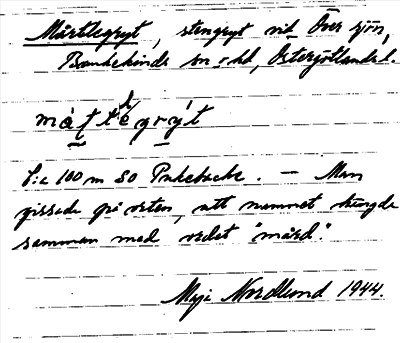 Mårtlegryt, stengryt vid Över sjön,
Bankekinds sn o hd, Östergötlands l.
måt tlegrýt
C:a 100 m SO Pukebacke. – Man
gissade på orten, att namnet hängde
samman med ordet "mård".
Maj Nordlund 1944.